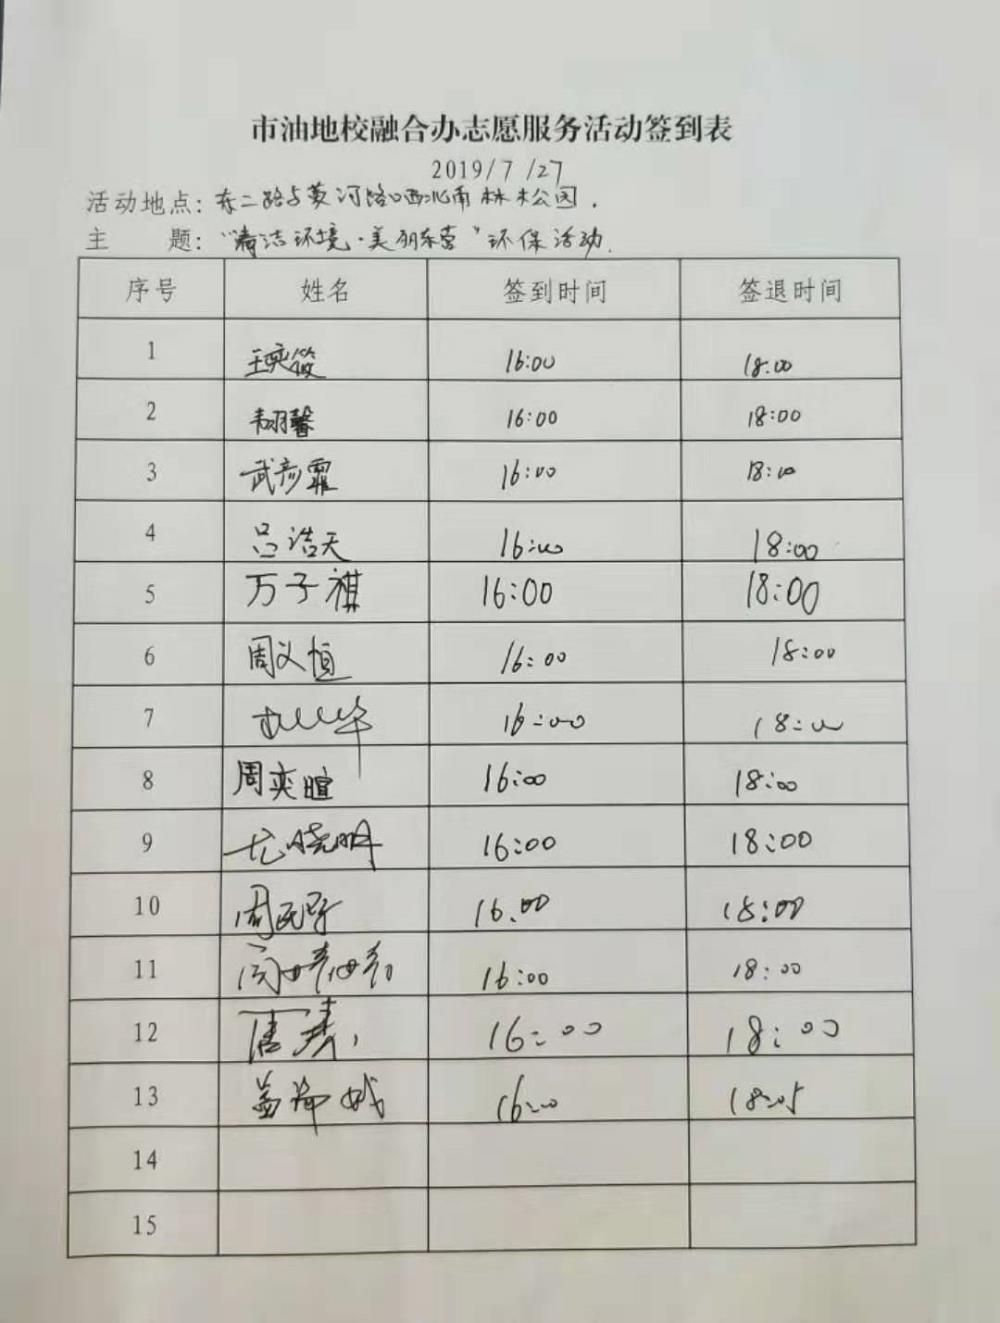 市油地校融合办志愿服务活动签到表
2019/7/27
活动地点：东二路与黄河路西北南林木公园.
主 题："清洁环境·美丽东营"环保活动.
序号 姓名 签到时间 签退时间
1 王奕筱 16:00 18:00
2 16:00 18:00
3 武彦霏 16:00 18:00
4 吕浩天 16:00 18:00
5 万子祺 16:00 18:00
6 周义恒 16:00 18:00
7 16:00 18:00
8 周奕暄 16:00 18:00
9 尤晓明 16:00 18:00
10 16:00 18:00
11 16:00 18:00
12 16:00 18:00
13 16:00 18:05
14
15